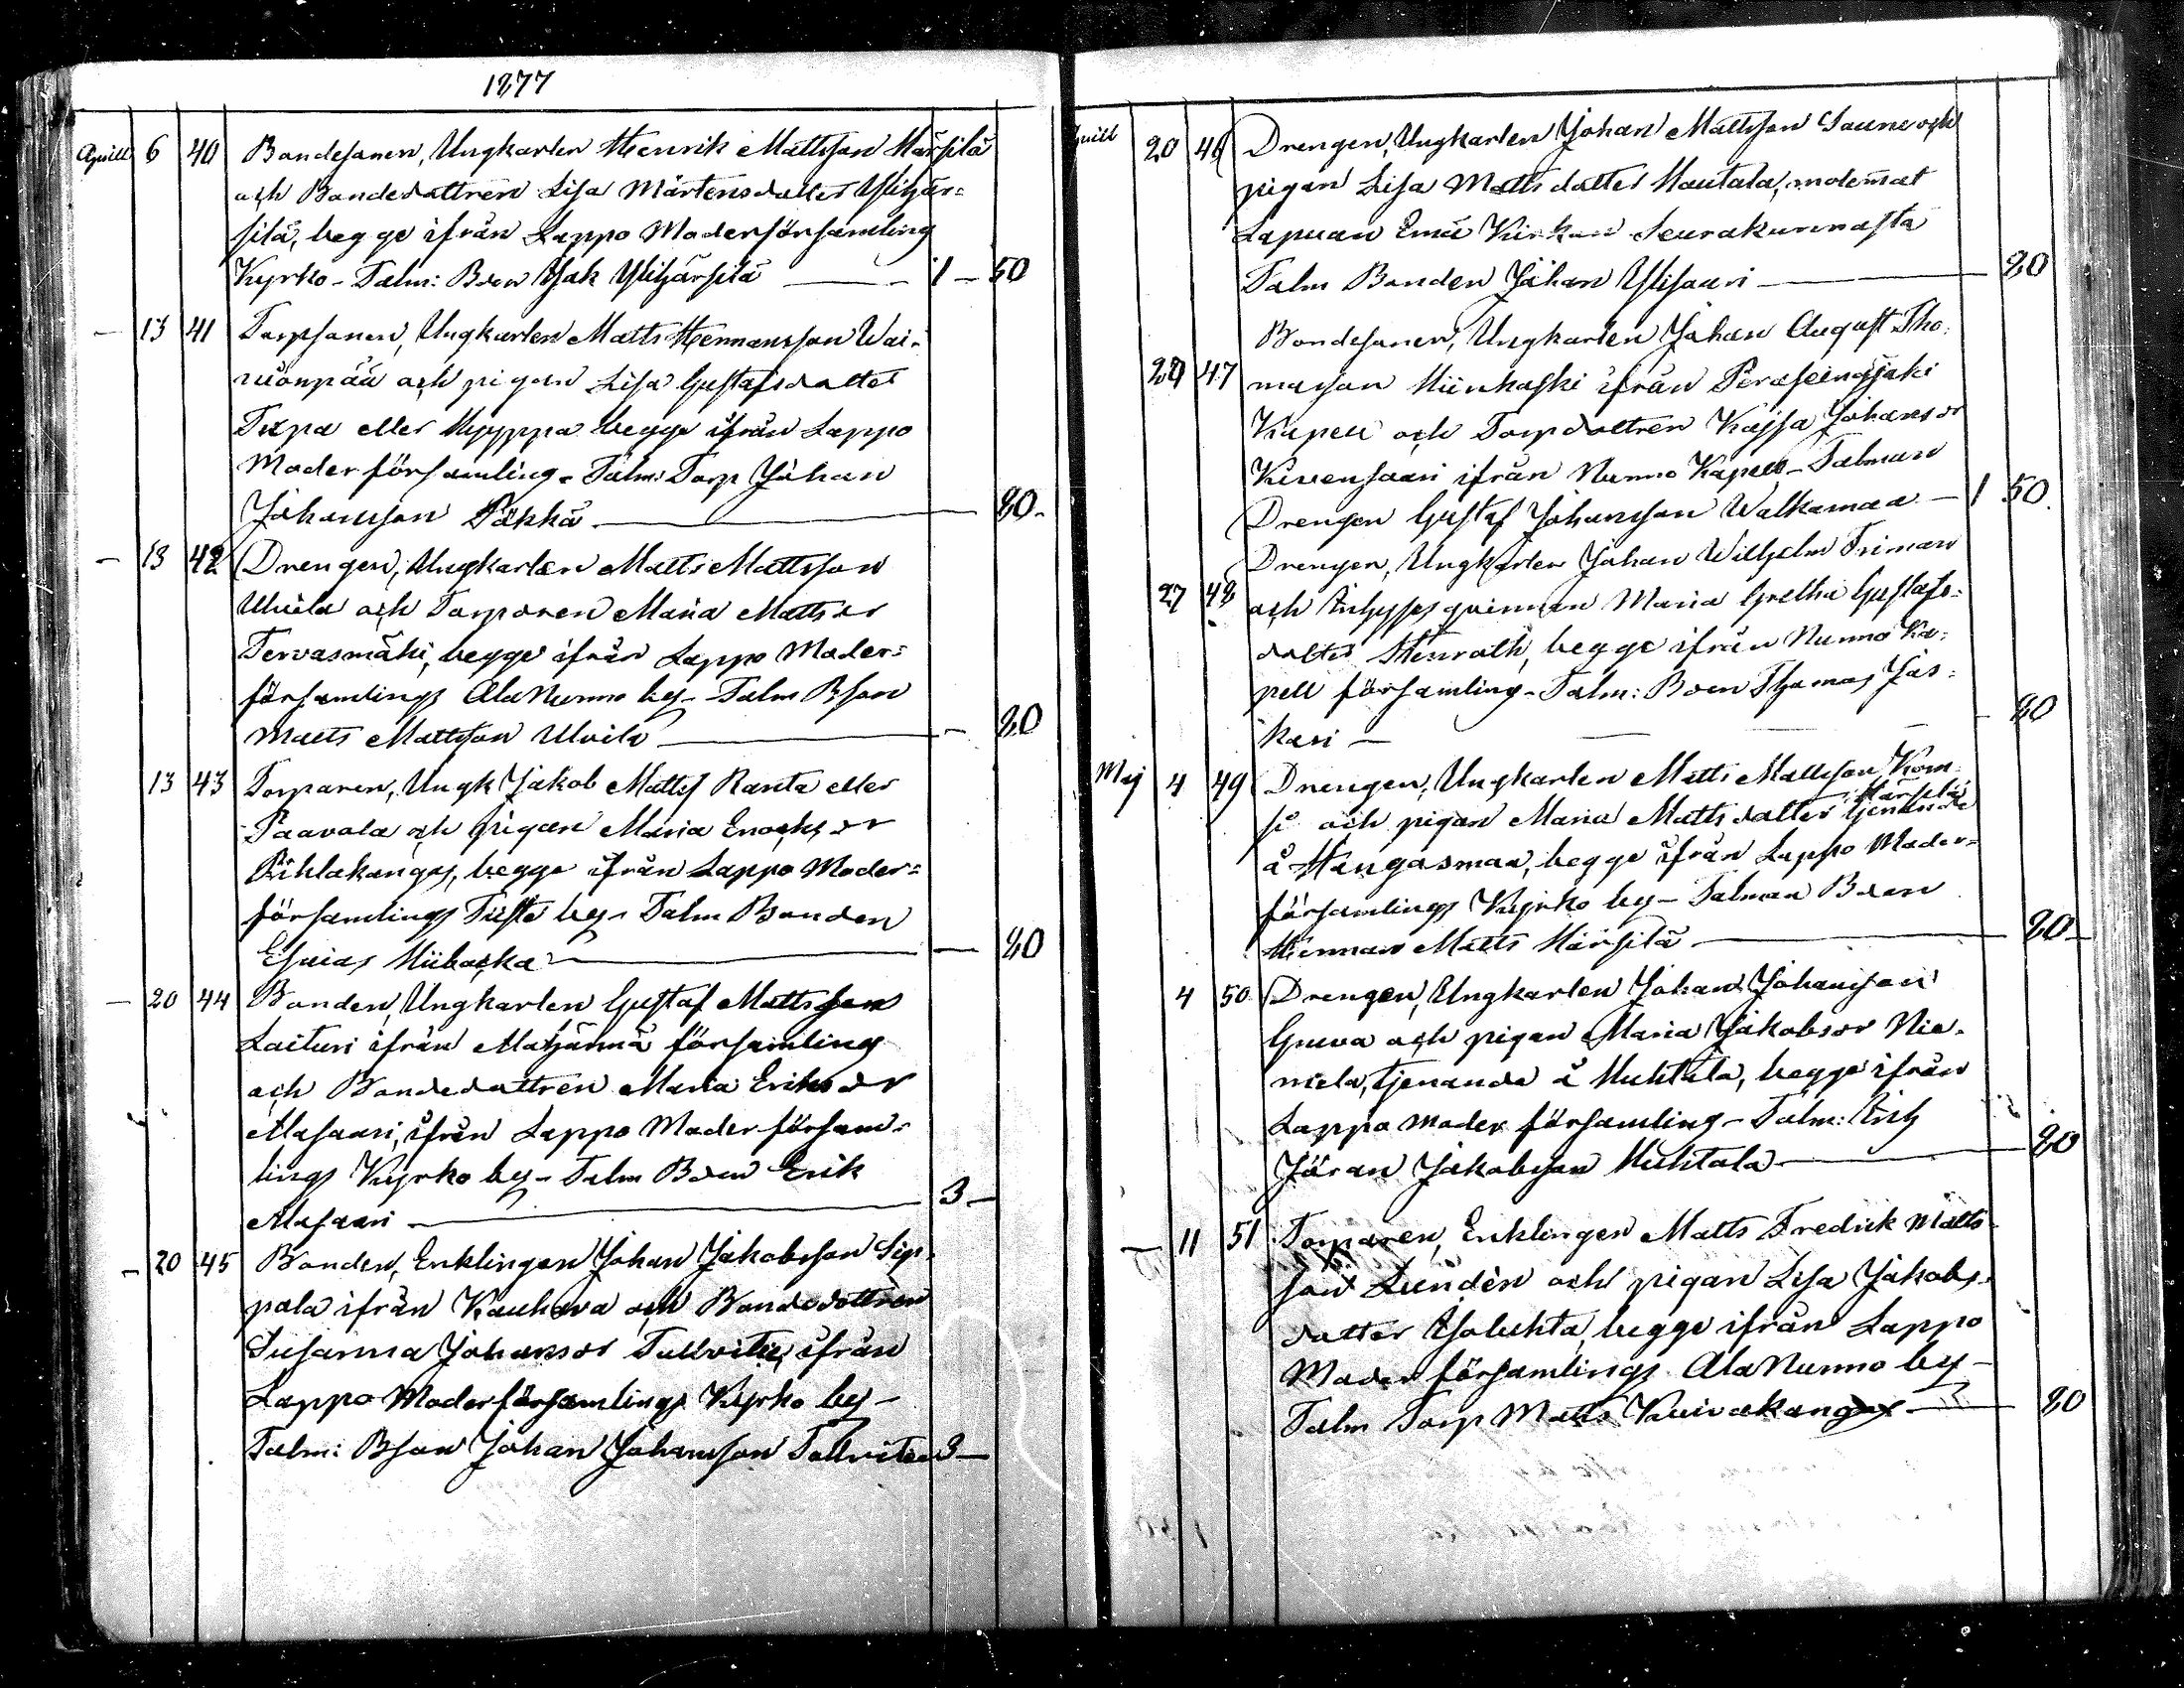 1877
Aprill 6 40 Bondesonen, Ungkarlen Henrik Mattsson Härsilä
och Bondedottren Lisa Mårtensdotter Ylihär=
silä, begge ifrån Lappo Moderförsamling
Kyrko - Talm: Bden Isak Ylihärsilä — 1 — 50
— 13 41 Torpsonen, Ungkarlen Matts Hermansson Wai-
niönpää och pigan Lisa Gustafsdotter
Tupa eller Hyyppä begge ifrån Lappo
Moderförsamling - Talm: Torp Johan
Johansson Pökkä — 80 -
— 13 42 Drengen, Ungkarlen Matts Mattsson
Uluila och Torparen Maria Matts dr
Tervasmäki, begge ifrån Lappo Moder=
församlings AlaNurmo by - Talm Bson
Matts Mattsson — 80
13 43 Torparen, Ungk Jakob Matts Ranta eller
Paavola och pigan Maria Enochs dr
Pihlakangas, begge ifrån Lappo Moder=
församlings Tiisté by - Talm Bonden
Esaias — 80
— 20 44 Bonden, Ungkarlen Gustaf Mattsson
Laituri ifrån församling
och Bondedottren Maria Eriks dr
Alasaari, ifrån Lappo Moderförsam-
lings Kyrko by - Talm Bden Erik
Alasaari — 3 —
— 20 45 Bonden, Enklingen Johan Jakobsson Sip-
pala ifrån Kauhava och Bondedottren
Susanna Johans dr Tallvitie, ifrån
Lappo Moderförsamlings Kyrko by -
Talm: Bson Johan Johansson Tallvitie 3 —
Aprill 20 46 Drengen, Ungkarlen Johan Mattsson Sauni och
pigan Lisa Mattsdotter Hautala, molemat
Lapuan Emä Kirkon Seurakunnasta
Talm Bonden Johan Ylisaari — 80
Bondesonen, Ungkarlen Johan August Tho-
22 47 masson ifrån Peräseinäjoki
Kapell och Torpdottren Kajsa Johans dr
Kivensaari ifrån Nurmo Kapell - Talman
Drengen Gustaf Johansson Walkamaa — 1 50.
Drengen, Ungkarlen Johan Wilhelm Friman
27 48 och Inhysesqvinnan Maria Gretha Gustafs-
dotter Stenroth, begge ifrån Nurmo Ka-
pell församling - Talm: Bden Thomas Jäs-
käri — 80
Maj 4 49 Drengen, Ungkarlen Matts Mattsson Kom-
si och pigan Maria Mattsdotter Härsilä tjenande
å Hangasmaa, begge ifrån Lappo Moder=
församlings Kyrko by - Talman Bden
Herman Matts Härsilä — 80 —
4 50 Drengen, Ungkarlen Johan Johansson
och pigan Maria Jakobs dr Nie-
melä, tjenande å Huhtala, begge ifrån
Lappo moder församling - Talm:
Jöran Jakobsson Huhtala — 80
— 11 51 Torparen, Enklingen Matts Fredrik Matts-
son Lundén och pigan Lisa Jakobs-
dotter Isoluhta, begge ifrån Lappo
Moder församlings AlaNurmo by -
Talm Torp Matts Kuivakangas — 80